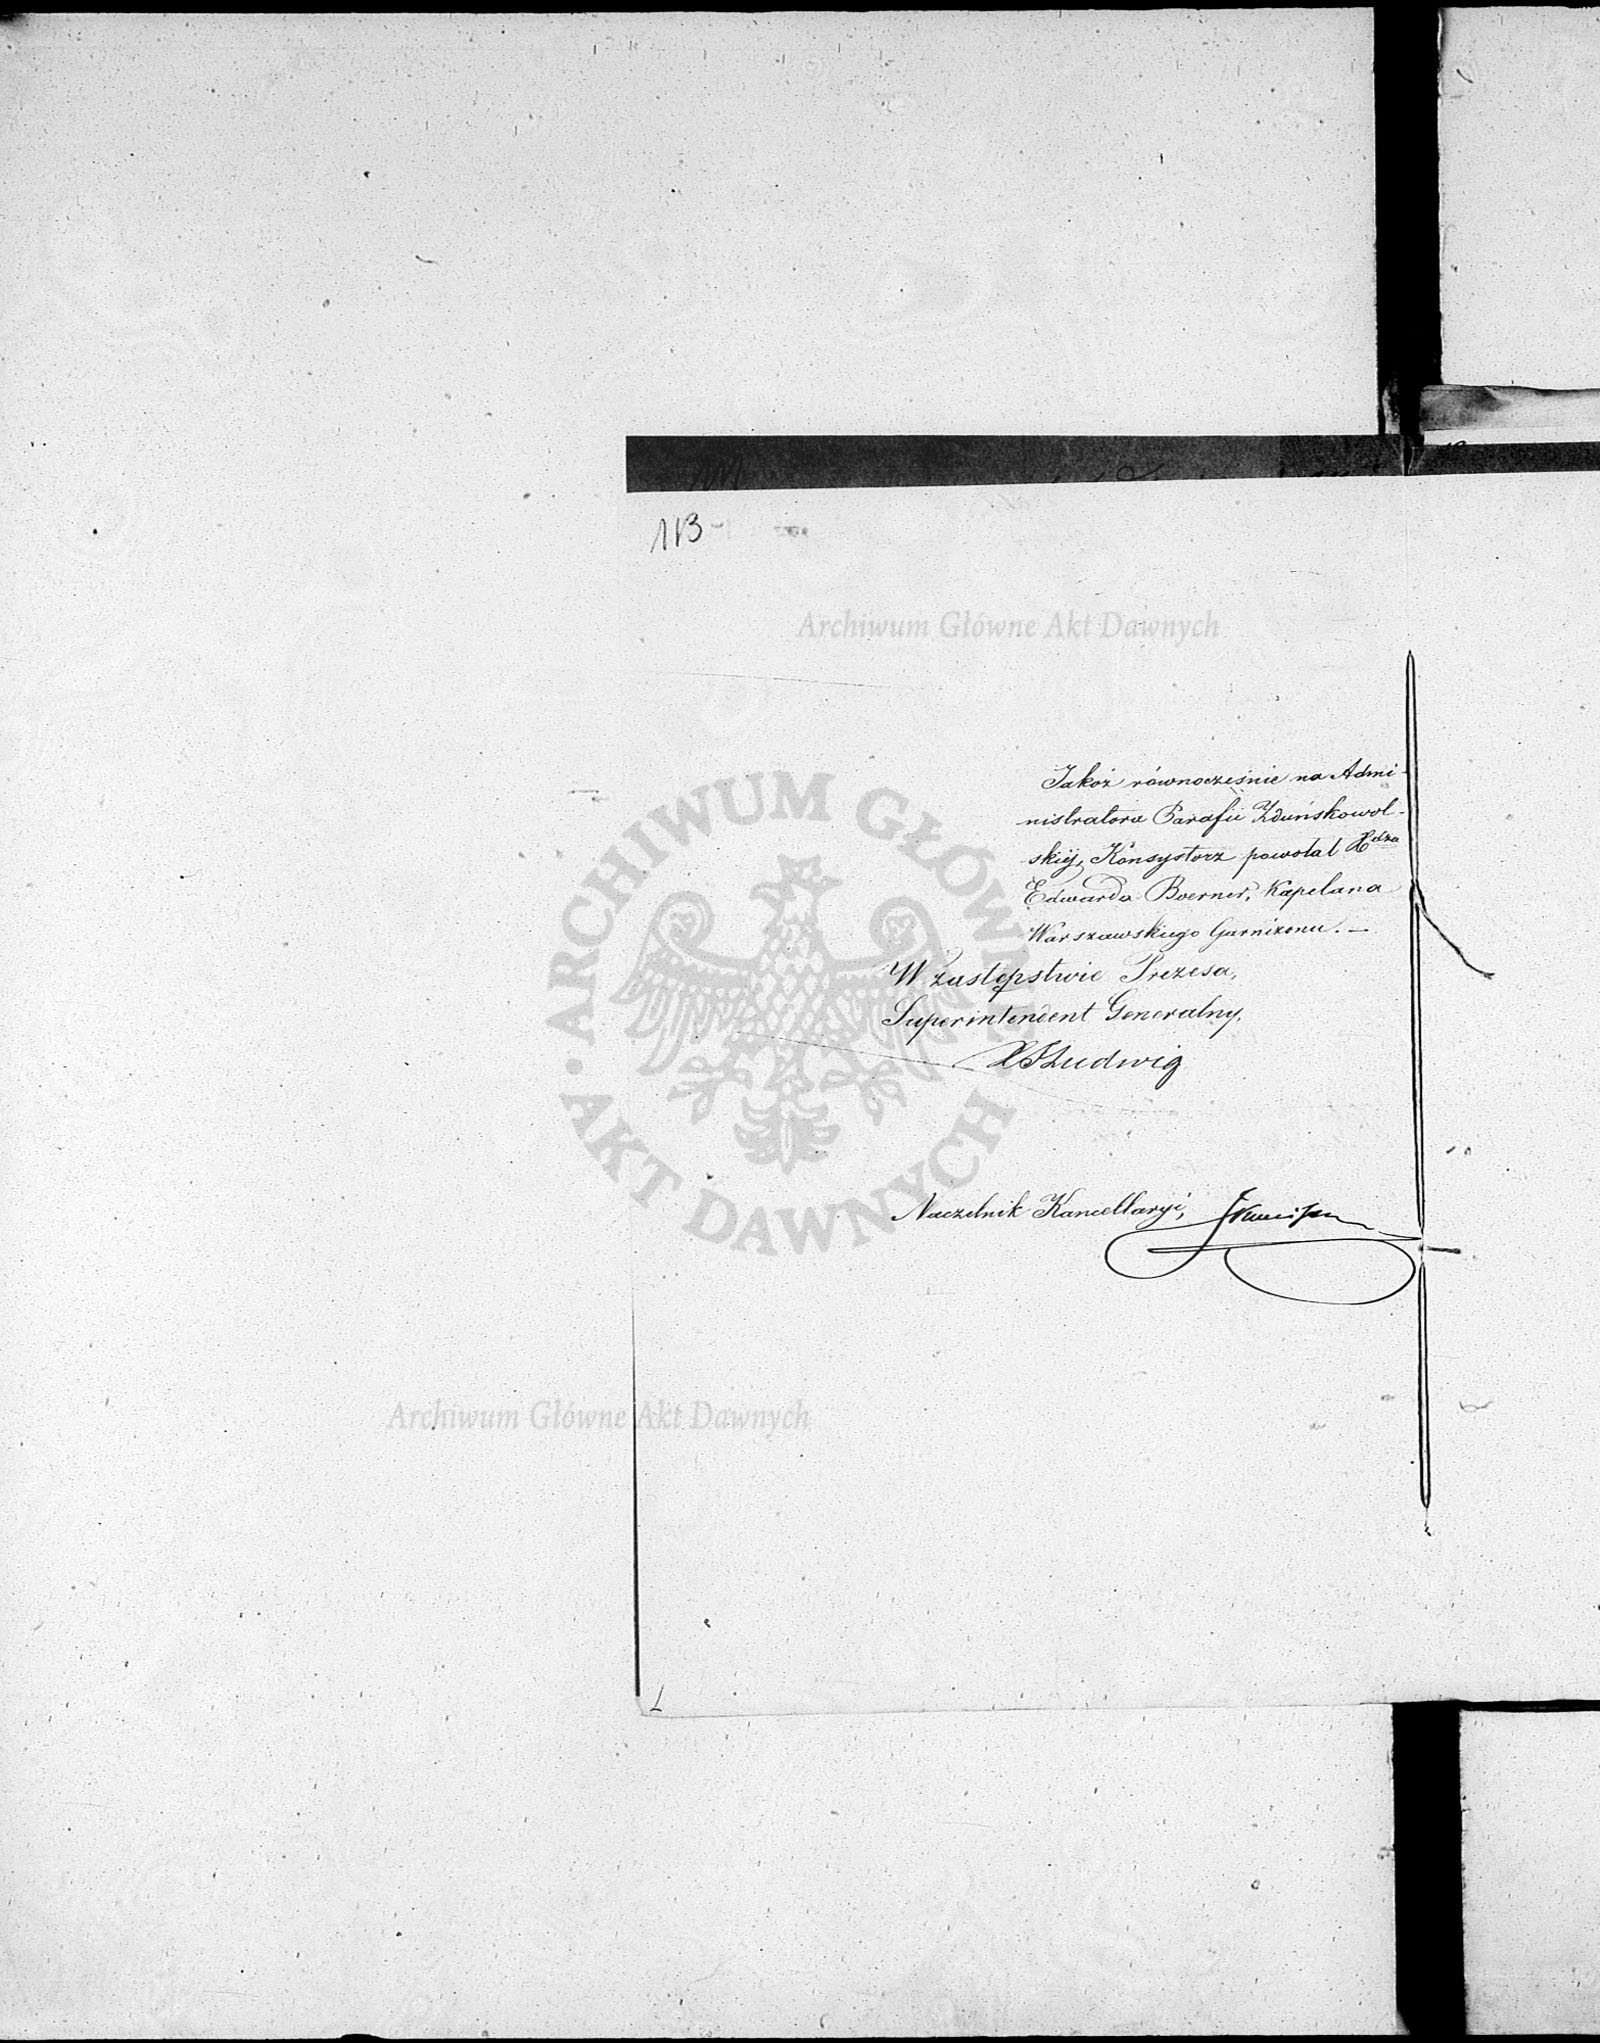 113
Archiwum Główne Akt Dawnych
Jakoż równocześnie na Admi-
nistratora Parafii Zduńskowol-
skiéj, Konsystorz powołał Xdza
Edwarda Boerner, Kapelana
Warszawskiego Garnizonu. —
W zastępstwie Prezesa,
Superintendent Generalny,
Ludwig
Naczelnik Kancellaryi,
ARCHIWUM GŁÓWNE
AKT DAWNYCH
Archiwum Główne Akt Dawnych